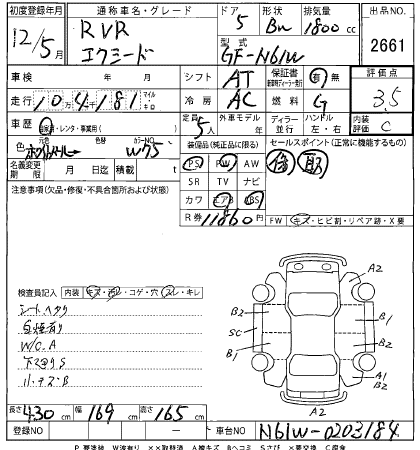 初度登録年月 通称車名・グレード ドア 形状 排気量 出品NO.
12/5月 RVR 5 Bn 1800cc
エクシード 型式 GF-N61W 2661
車検 年 月 シフト AT 保証書 有・無 評価点
走行 10万4千181 マイル キロ 冷房 AC 燃料 G 3.5
車歴 自家用・レンタ・事業用( ) 定員 5人 外車モデル 年 ディーラー 並行 ハンドル 左・右 内装 C
色 元色 ホワイトパール 色替 カラーNO W75 装備品(純正品に限る) セールスポイント(正常に機能するもの)
名義変更期限 月 日迄 積載 t PS PW AW 修 取
注意事項(欠品・修復・不具合箇所および状態) SR TV ナビ
カワ エアB ABS
R券 11860円 FW キズ・ヒビ割・リペア跡・X要
検査員記入 内装 キズ・汚レ・コゲ・穴 スレ・キレ
シートヘタリ
W/C.A
下マワリS
小・キズ・B
A2
B2 B1
SC
B1 B2
A1
B2
A2
長さ 430cm 幅 169cm 高さ 165cm
登録NO ― 車台NO N61W-0203184
P 要塗装 W波有り XX取替済 A線キズ Bヘコミ Sさび X要交換 C腐食